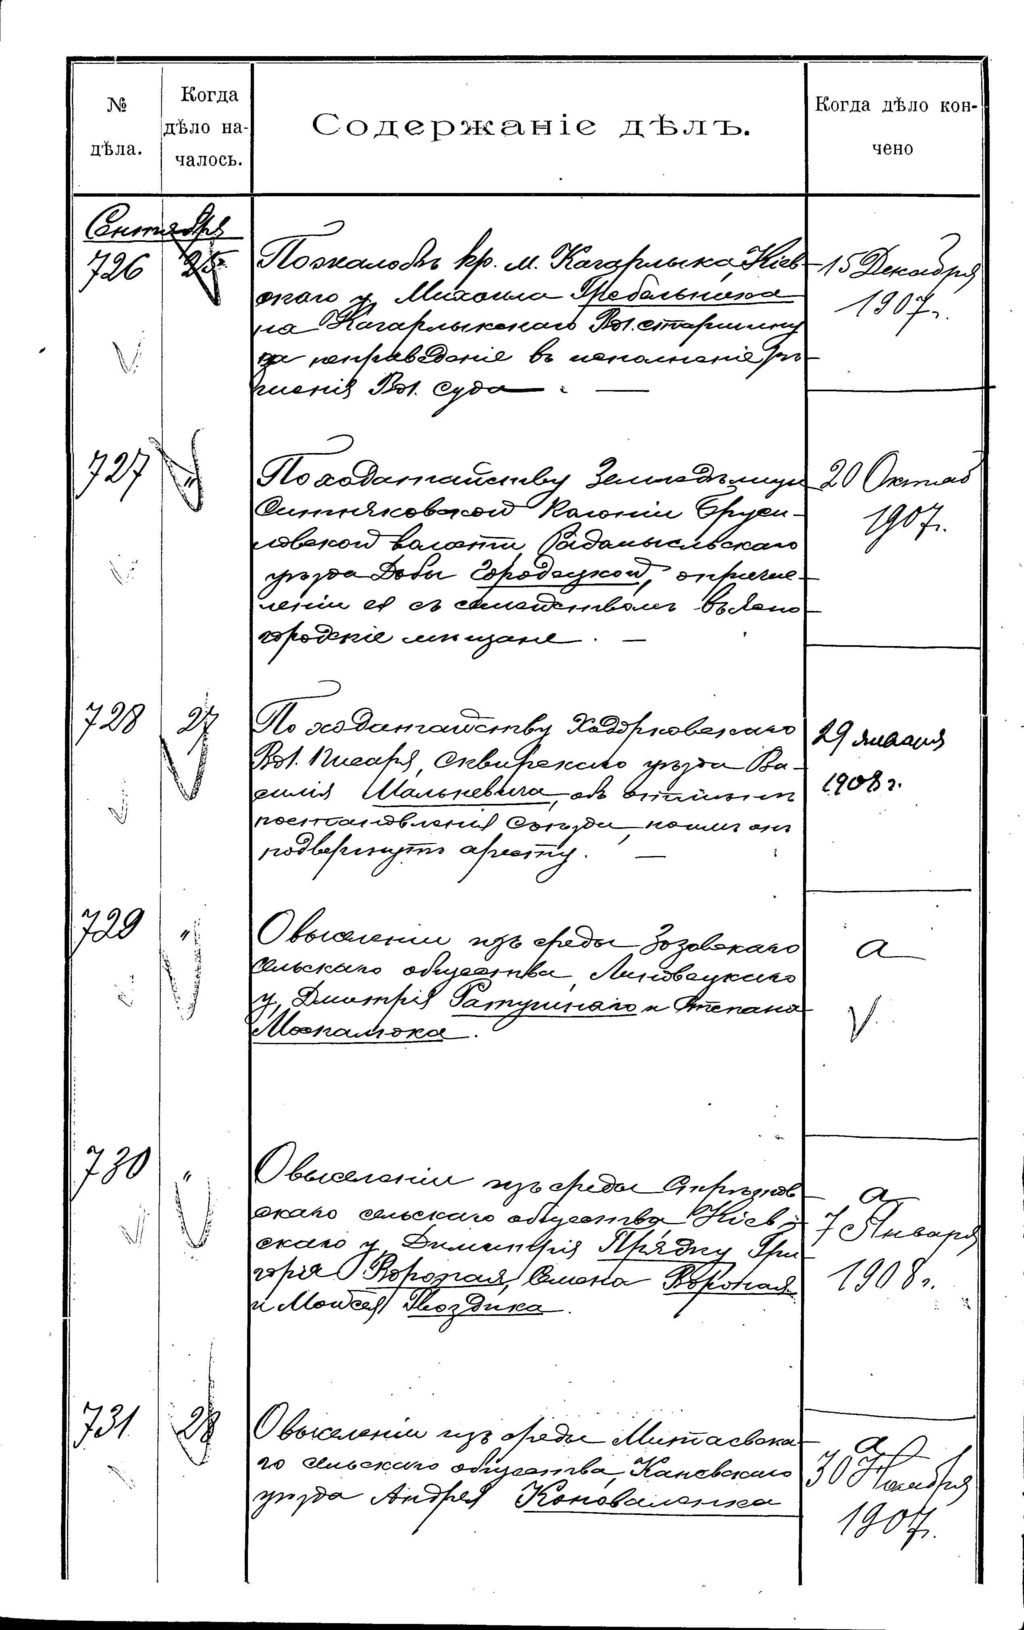 № дѣла.
Когда дѣло на-чалось.
Содержаніе дѣлъ.
Когда дѣло кон-чено
Сентября
726 25
По жалобѣ кр. м. Кагарлыка, Кіев-
скаго у. Михаила Гребельника
на Кагарлыкскаго Вол. старшину
за неприведеніе въ исполненіе рѣ-
шенія Вол. суда —
15 Декабря
1907 г.
727 "
По ходатайству
Ситняковской Колоніи Бруси-
ловской волости, Радомысльскаго
уѣзда Добы Городецкой, о причис-
леніи ея съ семействомъ въ
городскіе мещане. —
20 Октяб
1907 г.
728 27
По ходатайству Ходорковскаго
Вол. Писаря, Сквирскаго уѣзда Ва-
силія Малькевича, объ отмѣнѣ
постановленія Съѣзда, коимъ онъ
подвергнутъ аресту. —
29 января
1908 г.
729 "
О выселеніи изъ среды Зозовскаго
сельскаго общества, Липовецкаго
у. Дмитрія Ратушнаго и Степана
Москалюка.
а
730 "
О выселеніи изъ среды
скаго сельскаго общества, Кіев-
скаго у. Димитрія Прядку, Гри-
горія Воропая, Семена Воропая
и Моисея Гвоздика.
а
7 Января
1908 г.
731 28
О выселеніи изъ среды Митаевска-
го сельскаго общества, Каневскаго
уѣзда Андрея Коноваленка
а
30 Ноября
1907 г.